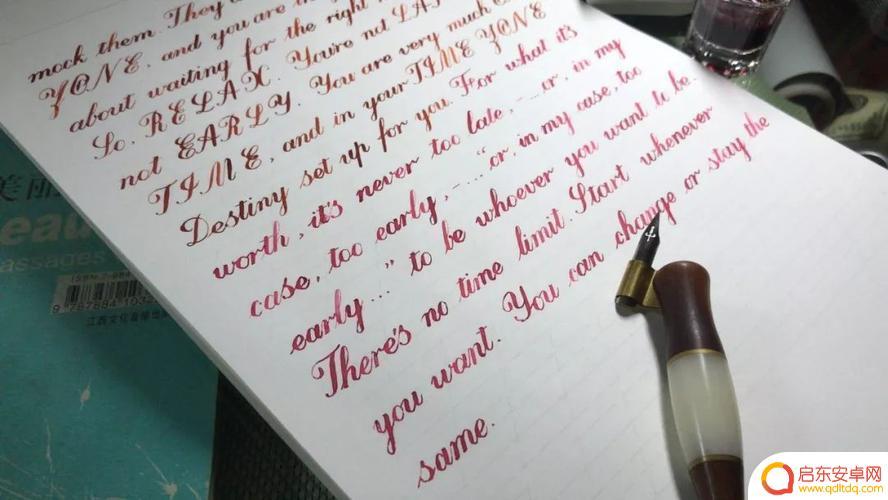 mock them. They
ZONE, and you are
about waiting for the right
So, RELAX. You're not LA
not EARLY. You are very much
TIME, and in your TIME ZONE
Destiny set up for you. For what it's
worth, it's never too late, -...or, in my
case, too early, -..."or, in my case, too
early..." to be whoever you want to be.
There's no time limit. Start whenever
you want. You can change or stay the
same.
美丽
eau
assages
启东安卓网
www.qdltdq.com